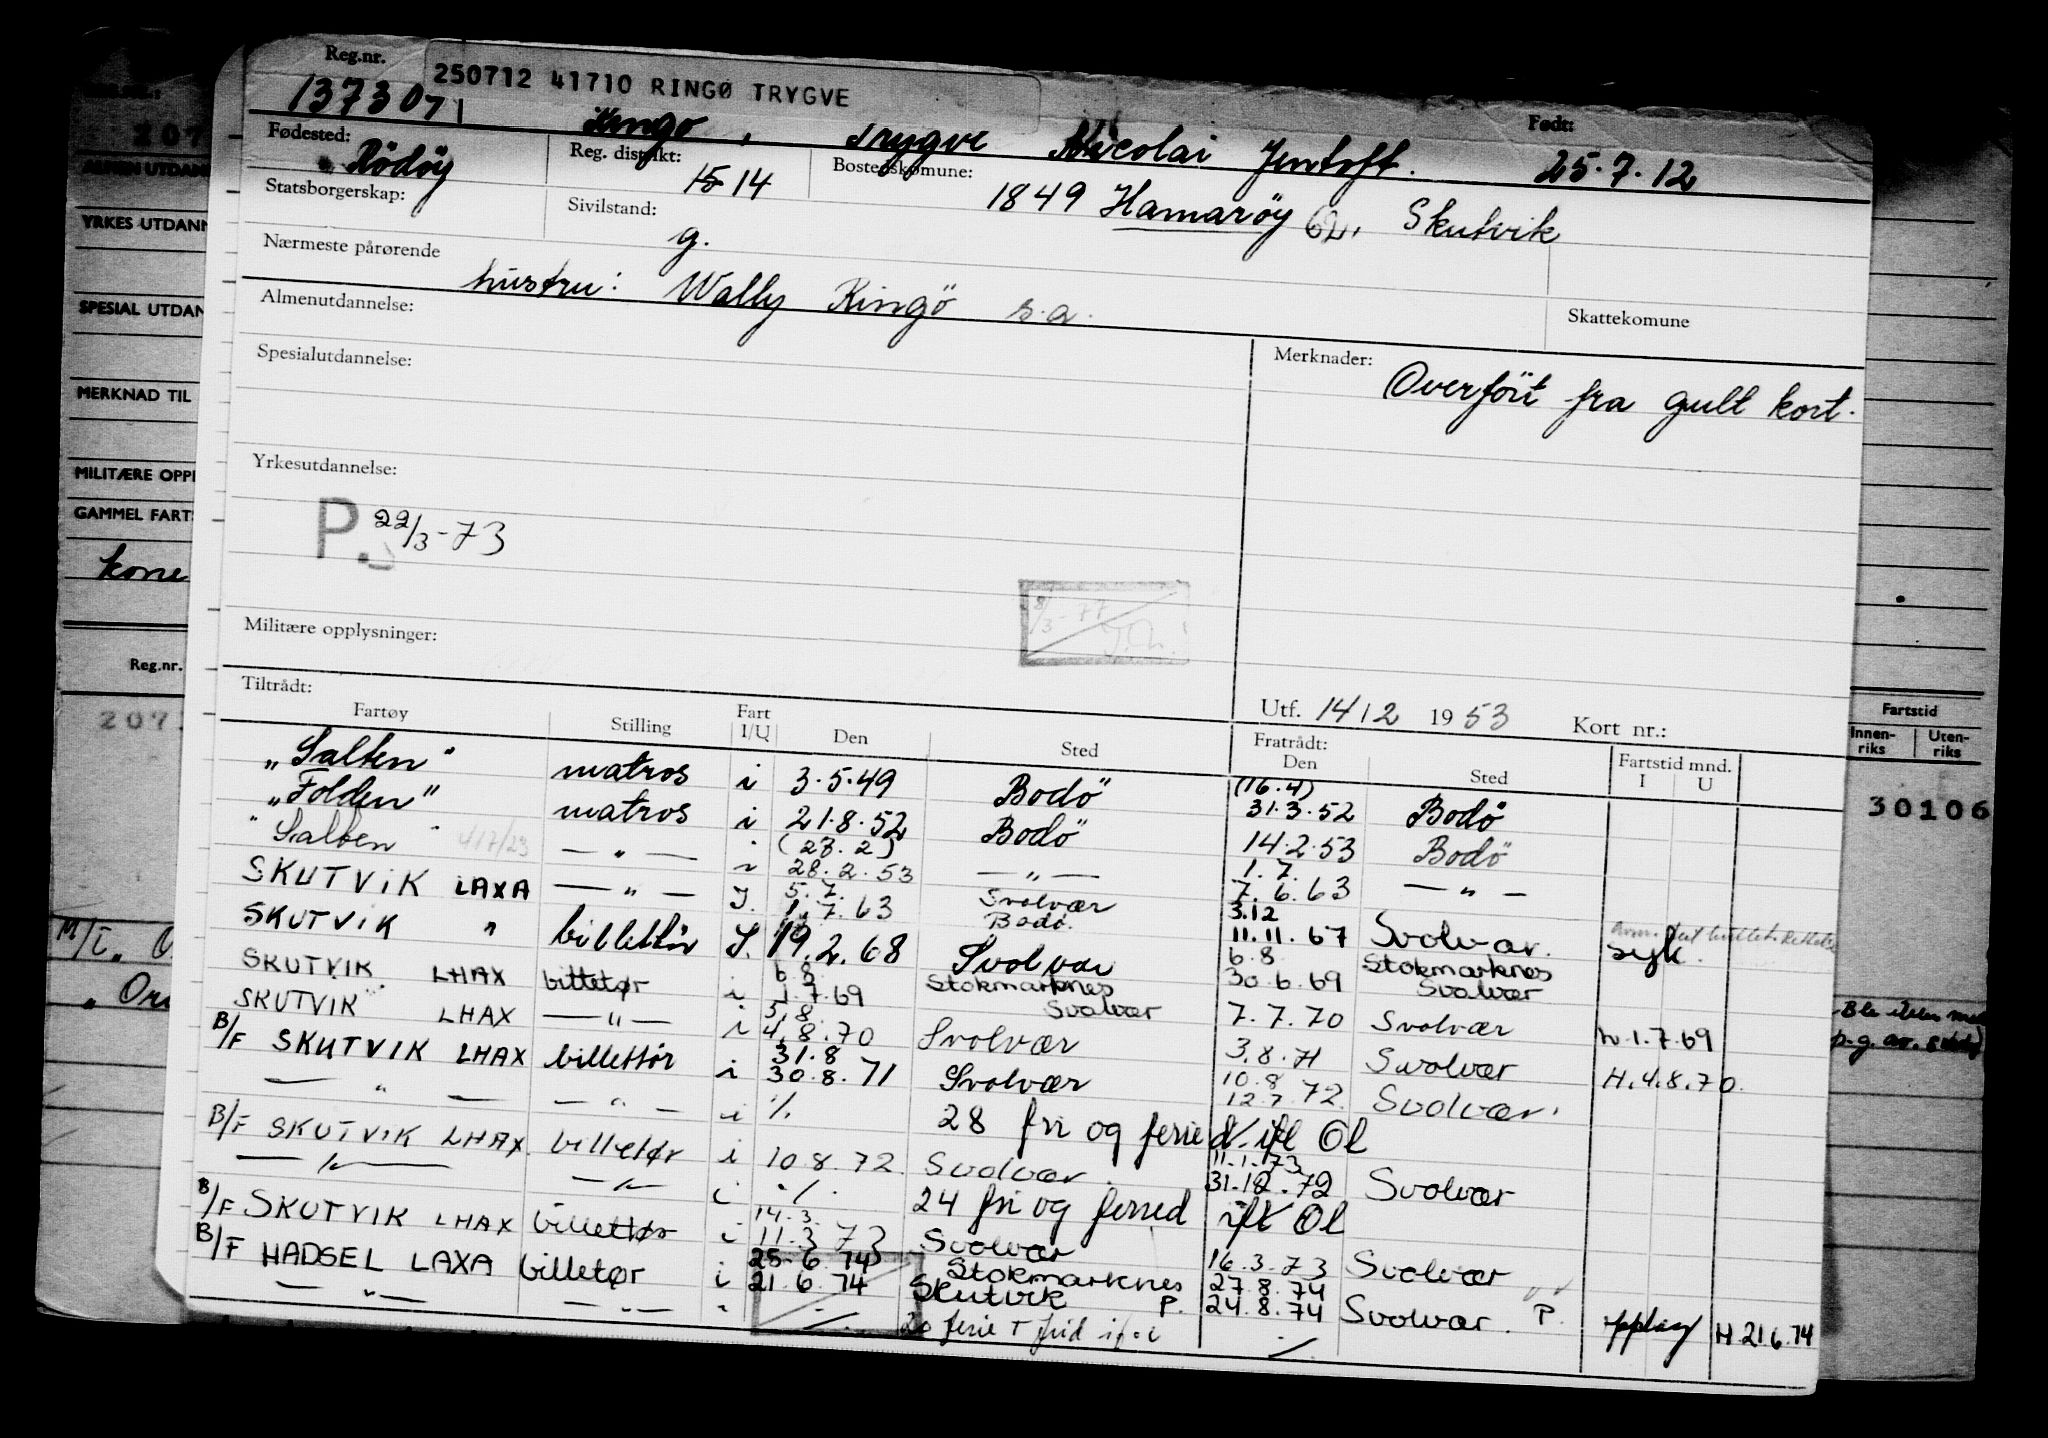 Reg.nr.
250712 41710 RINGØ TRYGVE
137307
Ringø, Trygve Nicolai Jentoft. Født: 25.7.12
Fødested: Rödöy Reg. distrikt: 15 14 Bostedskomune: 1849 Hamaröy 62, Skutvik
Statsborgerskap: Sivilstand: g.
Nærmeste pårørende hustru: Wally Ringö s.a.
Almenutdannelse: Skattekomune
Spesialutdannelse: Merknader: Overfört fra gult kort.
Yrkesutdannelse:
P. 22/3-73
8/3-77
Militære opplysninger:
Tiltrådt: Utf. 14/12 1953 Kort nr.:
Fartøy Stilling Fart I/U Den Sted Fratrådt: Den Sted Fartstid mnd. I U
"Salten" matros i 3.5.49 Bodö (16.4) 31.3.52 Bodö
"Folden" matros i 21.8.52 Bodö 14.2.53 Bodö
"Salten" — " — i (23.2) 28.2.53 — " — 1.7. 7.6.63 — " —
SKUTVIK LAXA — " — I. 5.7. 1.7.63 Svolvær Bodø. 3.12 11.11.67 Svolvær. syk.
SKUTVIK " billettör I. 19.2.68 Svolvær 6.8 30.6.69 Stokmarknes Svolvær
SKUTVIK LHAX billetør i 6.8. 1.7.69 Stokmarknes Svolvær 7.7.70 Svolvær H.1.7.69
SKUTVIK LHAX — " — i 5.8. 4.8.70 Svolvær 3.8.71 Svolvær H.4.8.70.
B/F SKUTVIK LHAX billettör i 31.8 30.8.71 Svolvær 10.8 12.7.72 Svolvær.
— " — — " — i ./. 28 fri og ferie d. ifl Ol
B/F SKUTVIK LHAX billetør i 10.8.72 Svolvær. 11.1.73 31.12.72 Svolvær
— " — — " — i ./. 24 fri og feried ifl Ol
B/F SKUTVIK LHAX billettør i 14.3. 11.3.73 Svolvær 16.3.73 Svolvær
B/F HADSEL LAXA billetør i 25.6.74 21.6.74 Stokmarknes Skutvik P. 27.8.74 24.8.74 Svolvær. P. H.21.6.74
— " — — " — ./. 20 ferie + frid ./.
207
YRKES UTDANN
SPESIAL UTDAN
MERKNAD TIL
MILITÆRE OPPL
GAMMEL FARTS
kone
Reg.nr.
207
M/L.
Fartstid
Innen-riks Uten-riks
30106